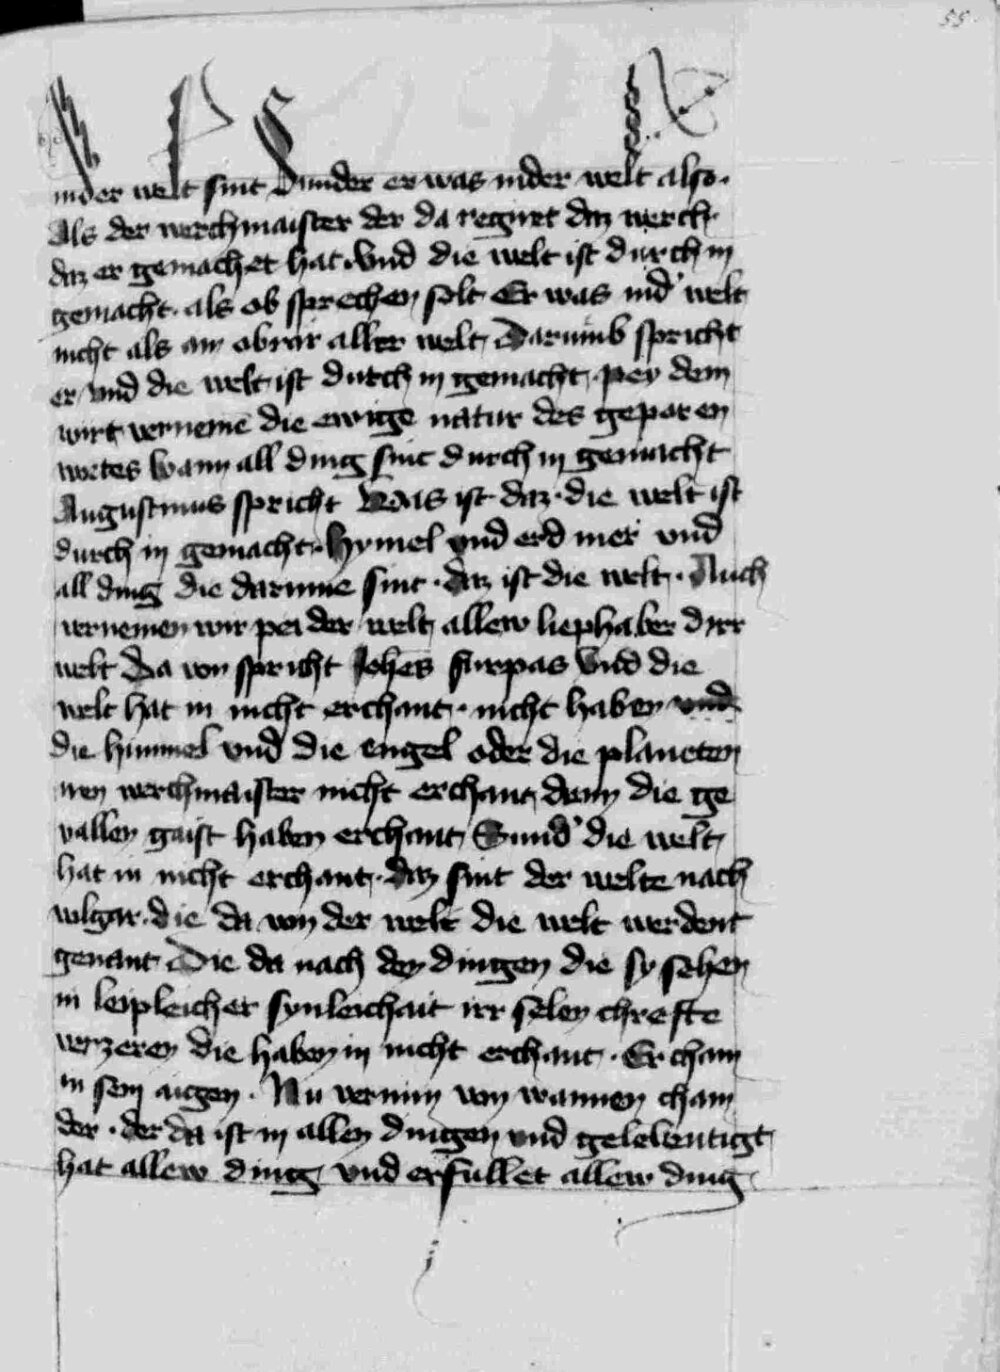 55
inder welt sint Sunder er was inder welt also.
Als der werchmaister der da regnet daz werch
daz er gemachet hat. Vnd die welt ist durch in
gemacht. als ob sprechen solt Er was ind' welt
nicht als ain obrār aller welt Darumb spricht
er vnd die welt ist durch in gemacht. pey dem
wirt vernemē die ewige natur des geporen
wortes Wann all ding sint durch in gemacht
Augustinus spricht Was ist daz. die welt ist
durch in gemacht. Hymel vnd erd mer vnd
all ding die darinne sint. daz ist die welt. Auch
vernemen wir pei der welt allew liephaber dirr
welt Da von spricht Johēs furpas Vnd die
welt hat in nicht erchant. nicht haben vnd
die himmel vnd die engel oder die planeten
iren werchmaister nicht erchant denn die ge
vallen gaist haben erchant Sund' die welt
hat in nicht erchant. daz sint der welte nach
volgār. die da von der welt die welt werdent
genant Die da nach den dingen die sy sehen
in leipleicher synleichait irr selen chrefte
verzeren die haben in nicht erchant. Er cham
in sein aigen. Nu vernim von wannen cham
der. der da ist in allen dingen vnd gelebentigt
hat allew ding vnd erfullet allew ding